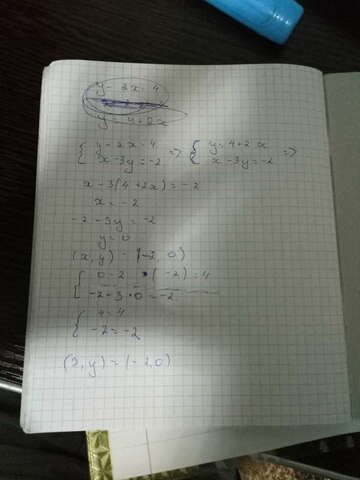 y - 2x = 4
y = 4 + 2x
{ y - 2x = 4 => { y = 4 + 2x =>
x - 3y = -2 x - 3y = -2
x - 3(4 + 2x) = -2
x = -2
-2 - 3y = -2
y = 0
(x, y) = (-2, 0)
{ 0 - 2 · (-2) = 4
-2 - 3 · 0 = -2
{ 4 = 4
-2 = -2
(x, y) = (-2 0)